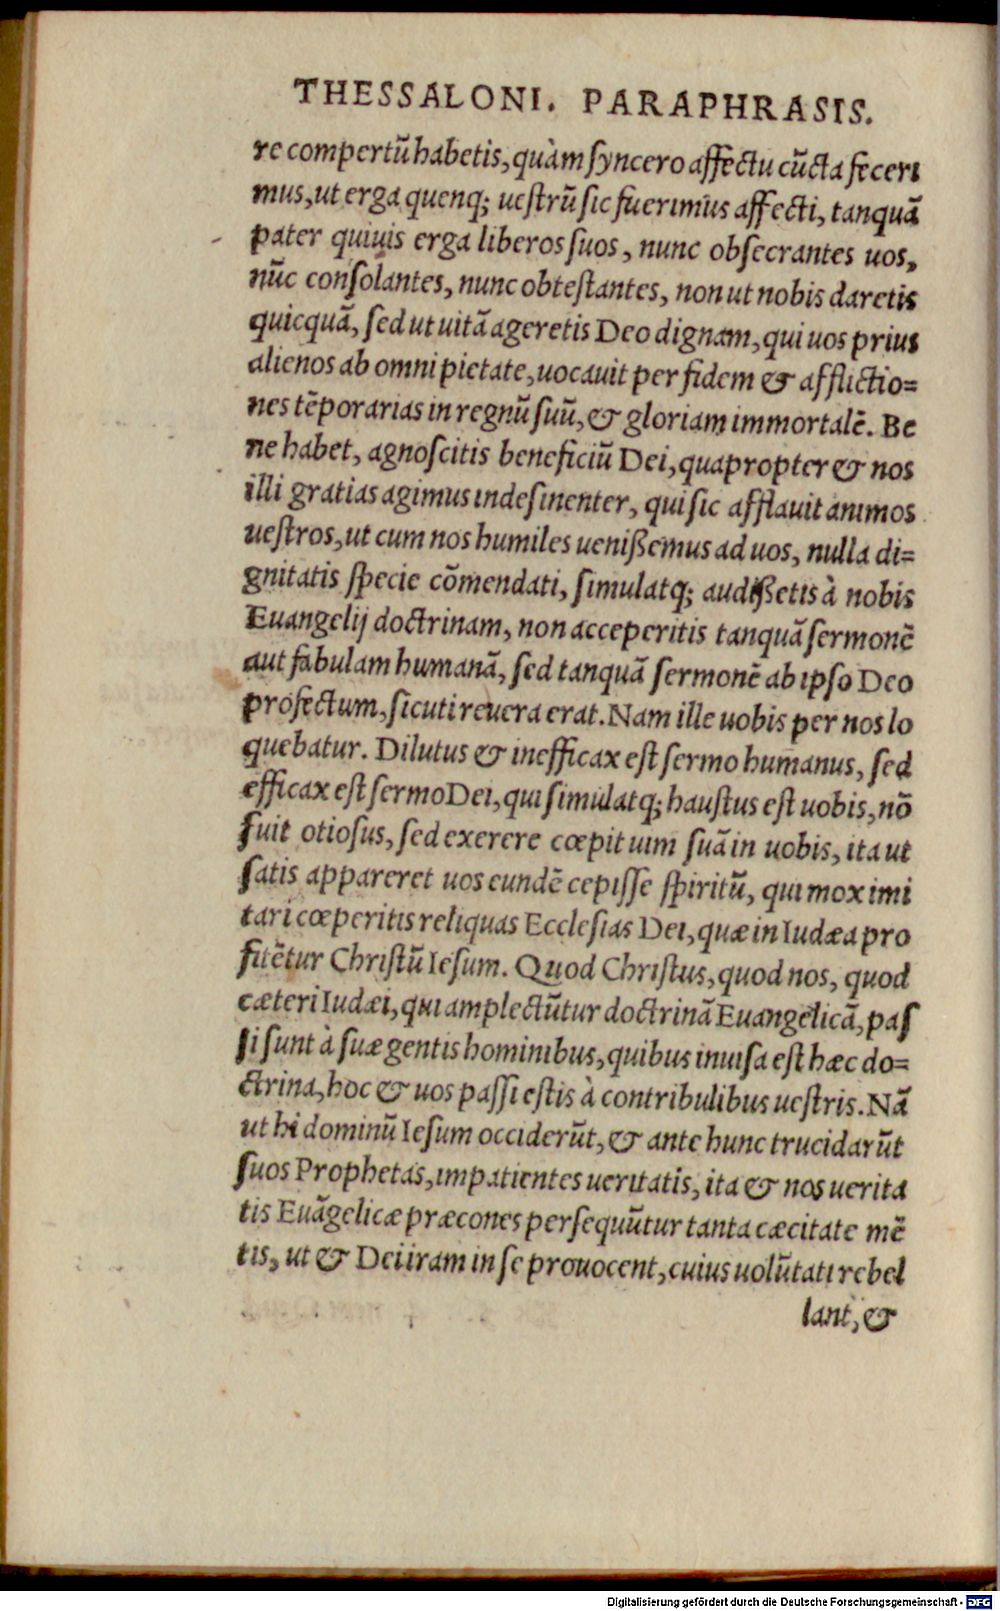 THESSALONI. PARAPHRASIS.
re compertũ habetis, quàm syncero affectu cũcta feceri
mus, ut erga quenq; uestrũ sic fuerimus affecti, tanquã
pater quiuis erga liberos suos, nunc obsecrantes uos,
nũc consolantes, nunc obtestantes, non ut nobis daretis
quicquã, sed ut uitã ageretis Deo dignam, qui uos prius
alienos ab omni pietate, uocauit per fidem & afflictio=
nes tẽporarias in regnũ suũ, & gloriam immortalẽ. Be
ne habet, agnoscitis beneficiũ Dei, quapropter & nos
illi gratias agimus indesinenter, qui sic afflauit animos
uestros, ut cum nos humiles uenißemus ad uos, nulla di=
gnitatis specie cõmendati, simulatq; audißetis à nobis
Euangelij doctrinam, non acceperitis tanquã sermonẽ
aut fabulam humanã, sed tanquã sermonẽ ab ipso Deo
profectum, sicuti reuera erat. Nam ille uobis per nos lo
quebatur. Dilutus & inefficax est sermo humanus, sed
efficax est sermo Dei, qui simulatq; haustus est uobis, nõ
fuit otiosus, sed exerere cœpit uim suã in uobis, ita ut
satis appareret uos eundẽ cepisse spiritũ, qui mox imi
tari cœperitis reliquas Ecclesias Dei, quæ in Iudæa pro
fitẽtur Christũ Iesum. Quod Christus, quod nos, quod
cæteri Iudæi, qui amplectũtur doctrinã Euangelicã, pas
si sunt à suæ gentis hominibus, quibus inuisa est hæc do=
ctrina, hoc & uos passi estis à contribulibus uestris. Nã
ut hi dominũ Iesum occiderũt, & ante hunc trucidarũt
suos Prophetas, impatientes ueritatis, ita & nos uerita
tis Euãgelicæ præcones persequũtur tanta cæcitate mẽ
tis, ut & Dei iram in se prouocent, cuius uolũtati rebel
lant, &
Digitalisierung gefördert durch die Deutsche Forschungsgemeinschaft - DFG